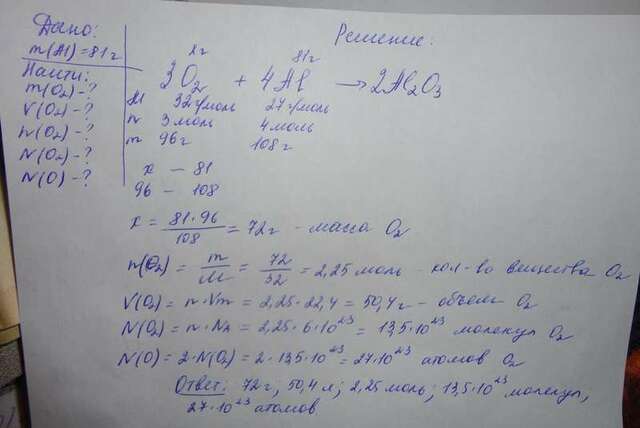 Дано:
m(Al)=81г
Найти:
m(O2)-?
V(O2)-?
n(O2)-?
N(O2)-?
N(O)-?
Решение:
xг 81г
3O2 + 4Al → 2Al2O3
M 32г/моль 27г/моль
n 3моль 4моль
m 96г 108г
x - 81
96 - 108
x = 81·96/108 = 72г - масса O2
n(O2) = m/M = 72/32 = 2,25 моль - кол-во вещества O2
V(O2) = n·Vm = 2,25·22,4 = 50,4г - объем O2
N(O2) = n·Na = 2,25·6·10²³ = 13,5·10²³ молекул O2
N(O) = 2·N(O2) = 2·13,5·10²³ = 27·10²³ атомов O2
Ответ: 72г; 50,4л; 2,25моль; 13,5·10²³ молекул;
27·10²³ атомов